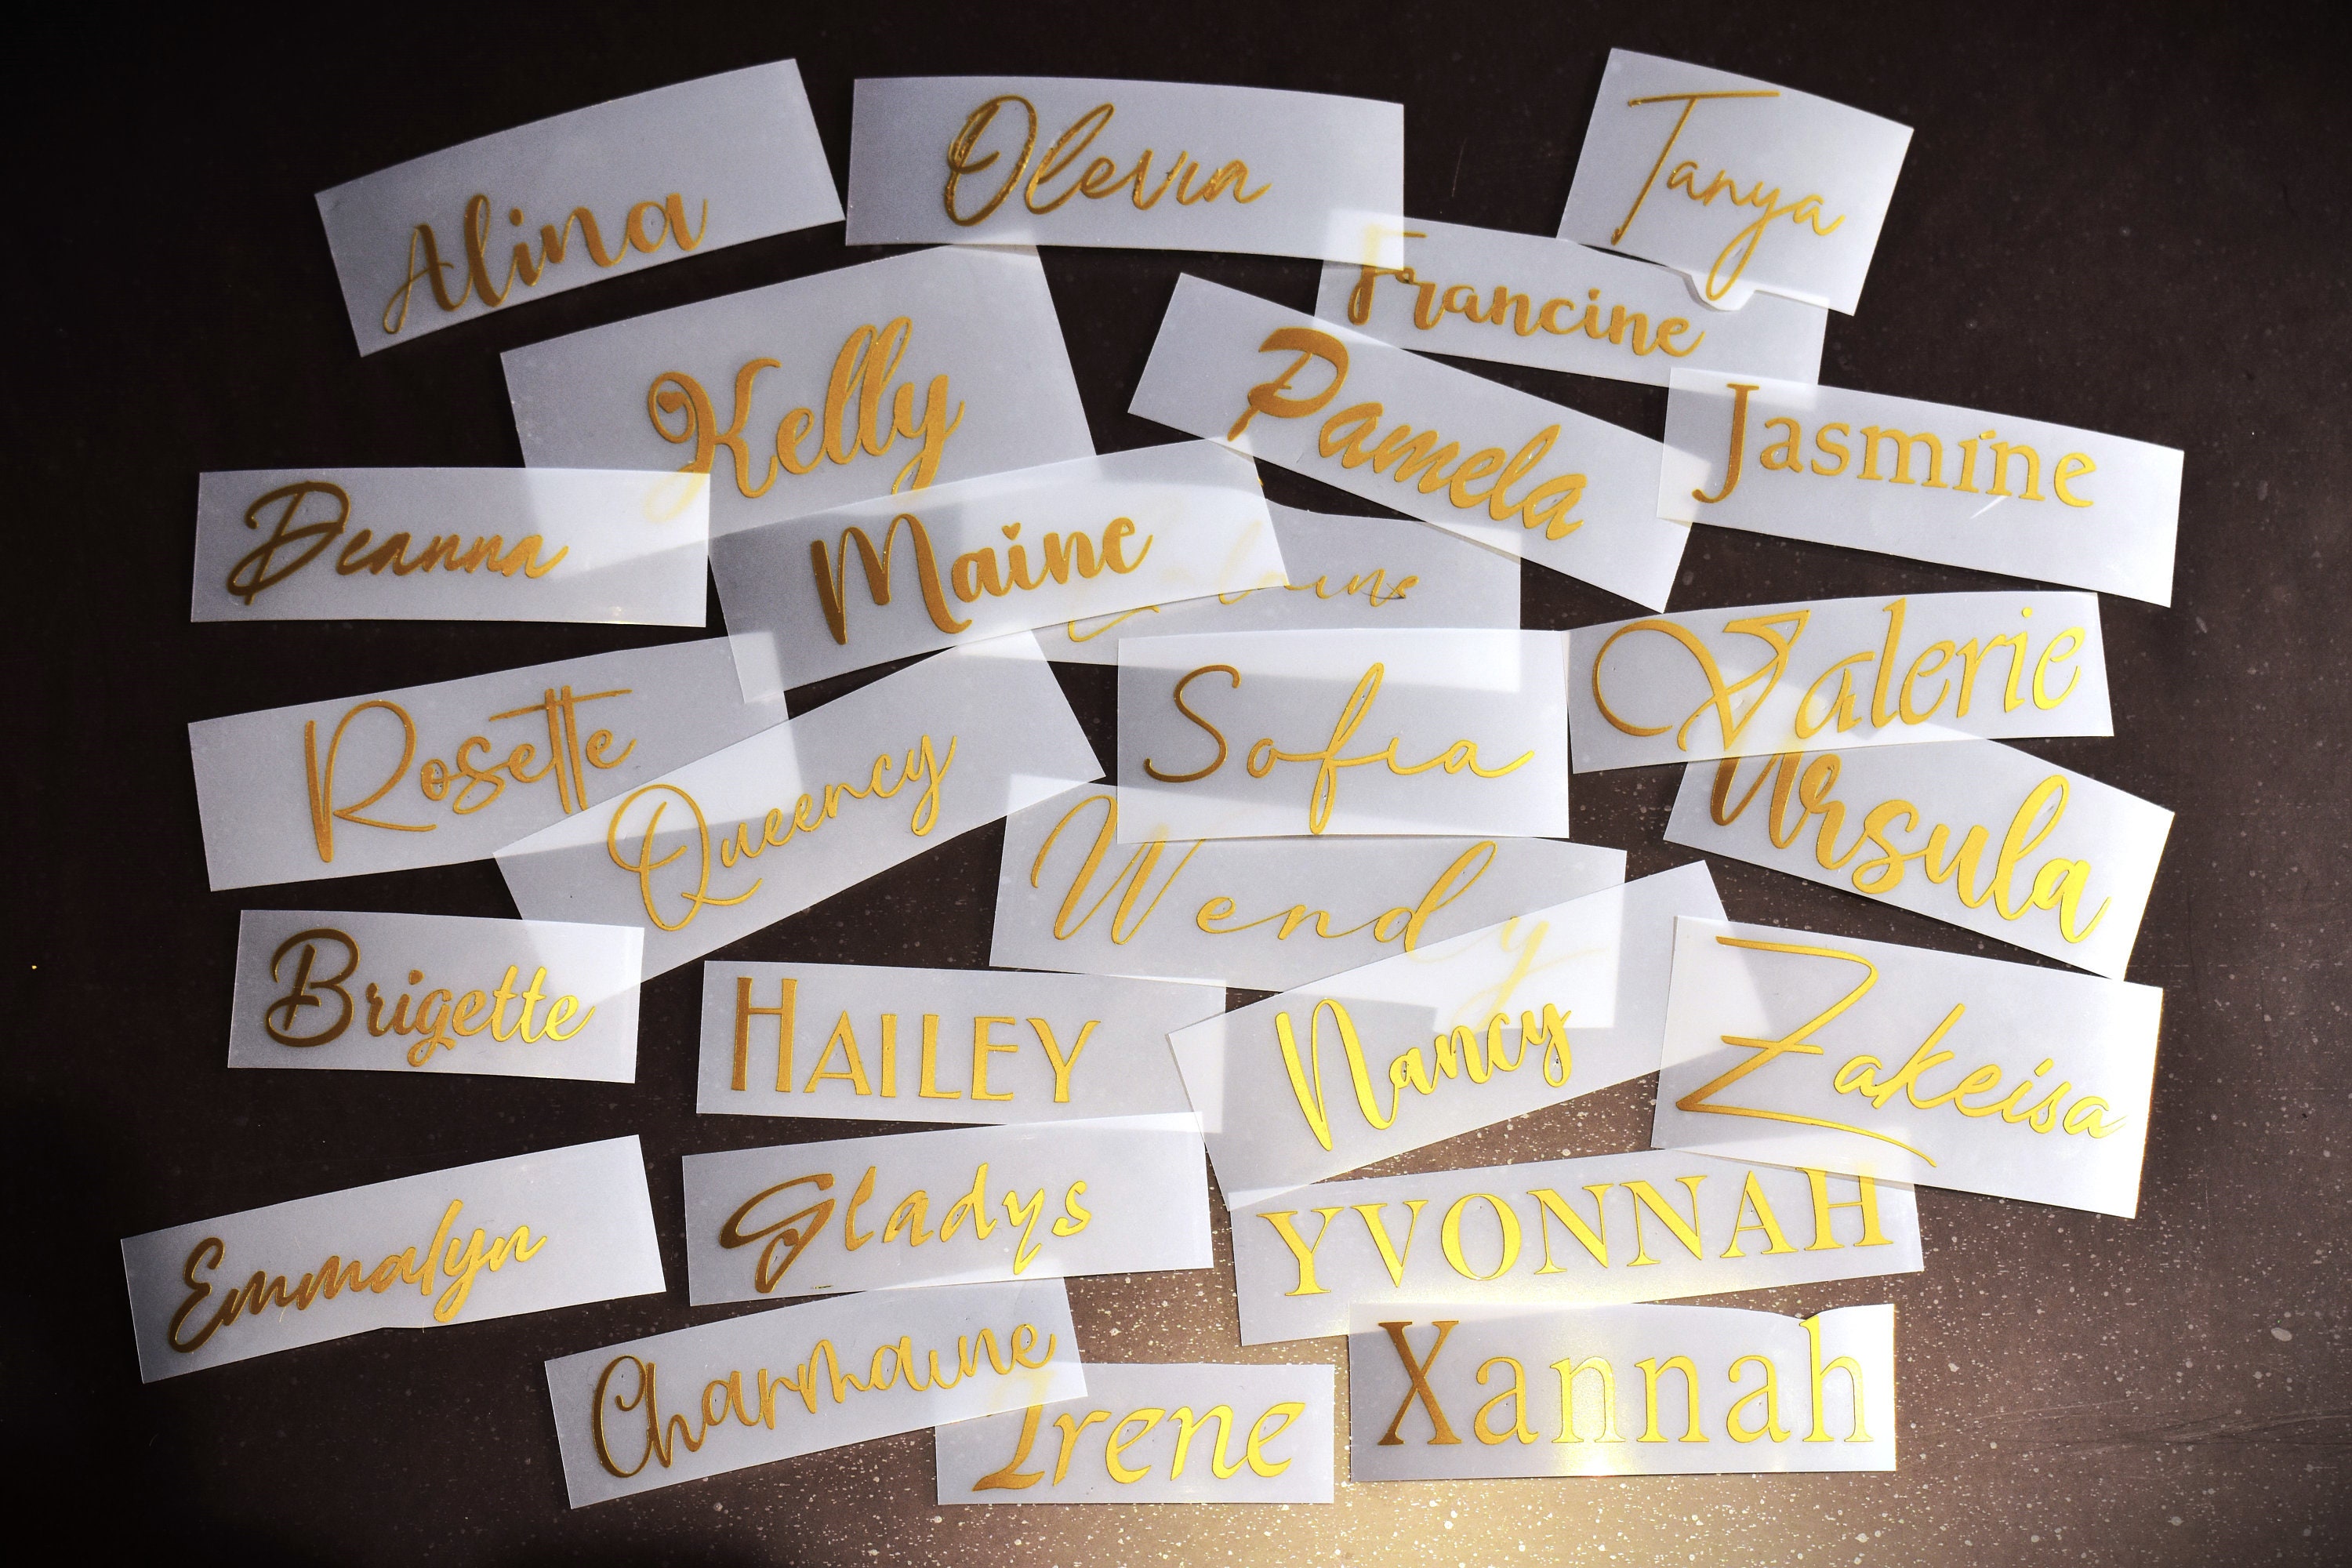 Alina
Olevin
Tanya
Francine
Kelly
Pamela
Jasmine
Deanna
Maine
Valerie
Rosette
Sofia
Queency
Ursula
Wendy
Brigette
HAILEY
Nancy
Zakeisa
Emmalyn
Gladys
YVONNAH
Charmaine
Irene
Xannah